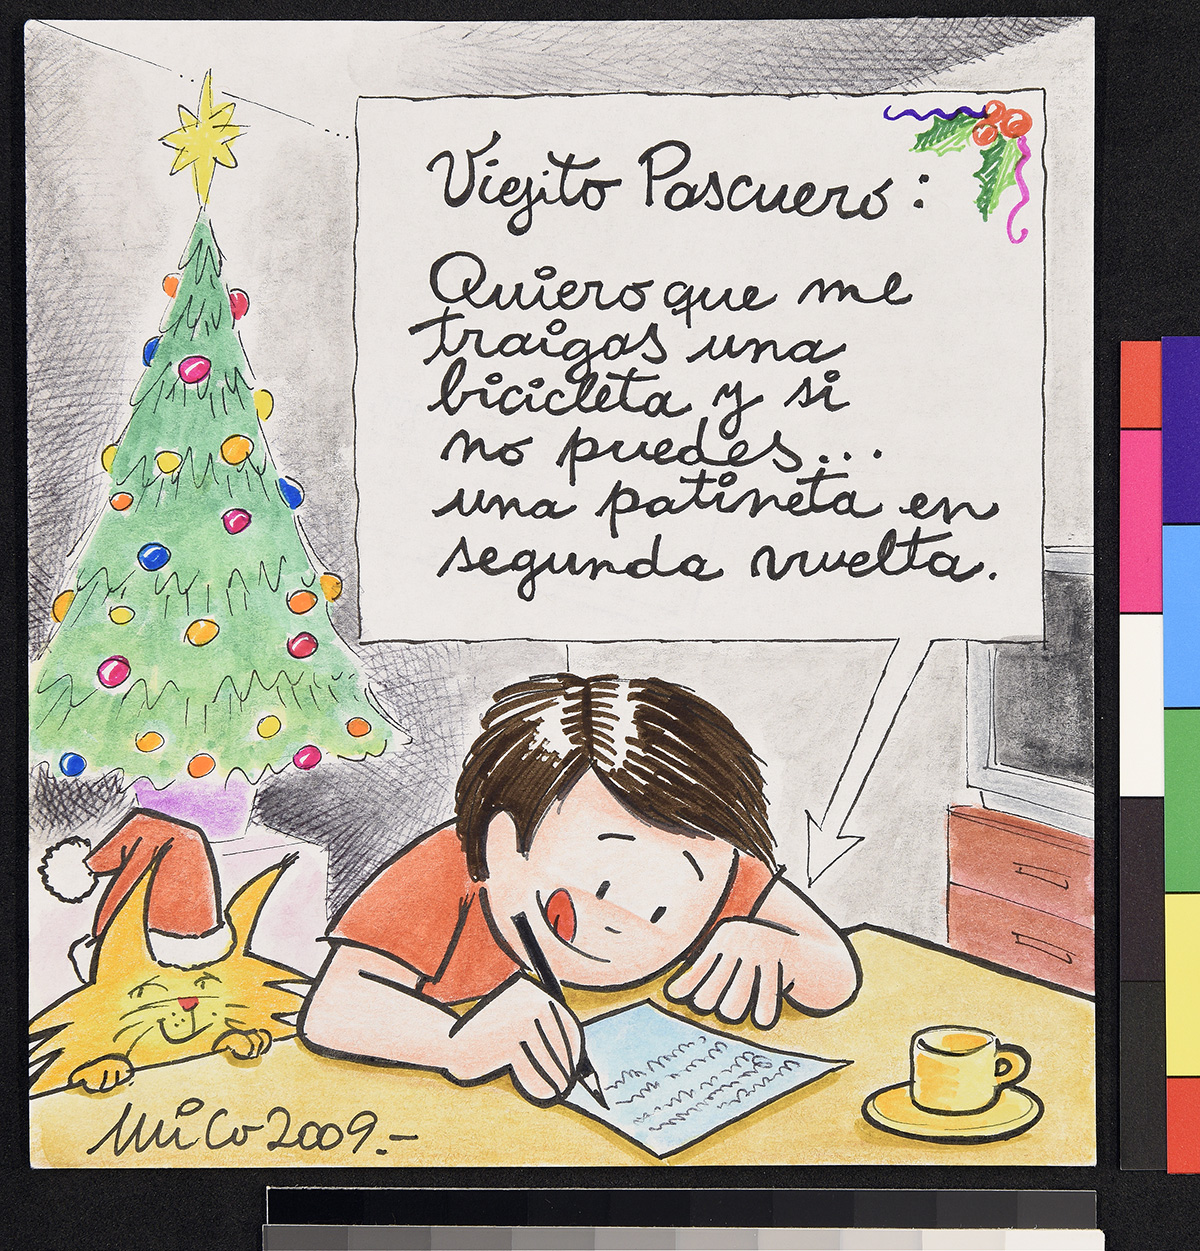 Viejito Pascuero:
Quiero que me
traigas una
bicicleta y si
no puedes...
una patineta en
segunda vuelta.
Mico 2009.-